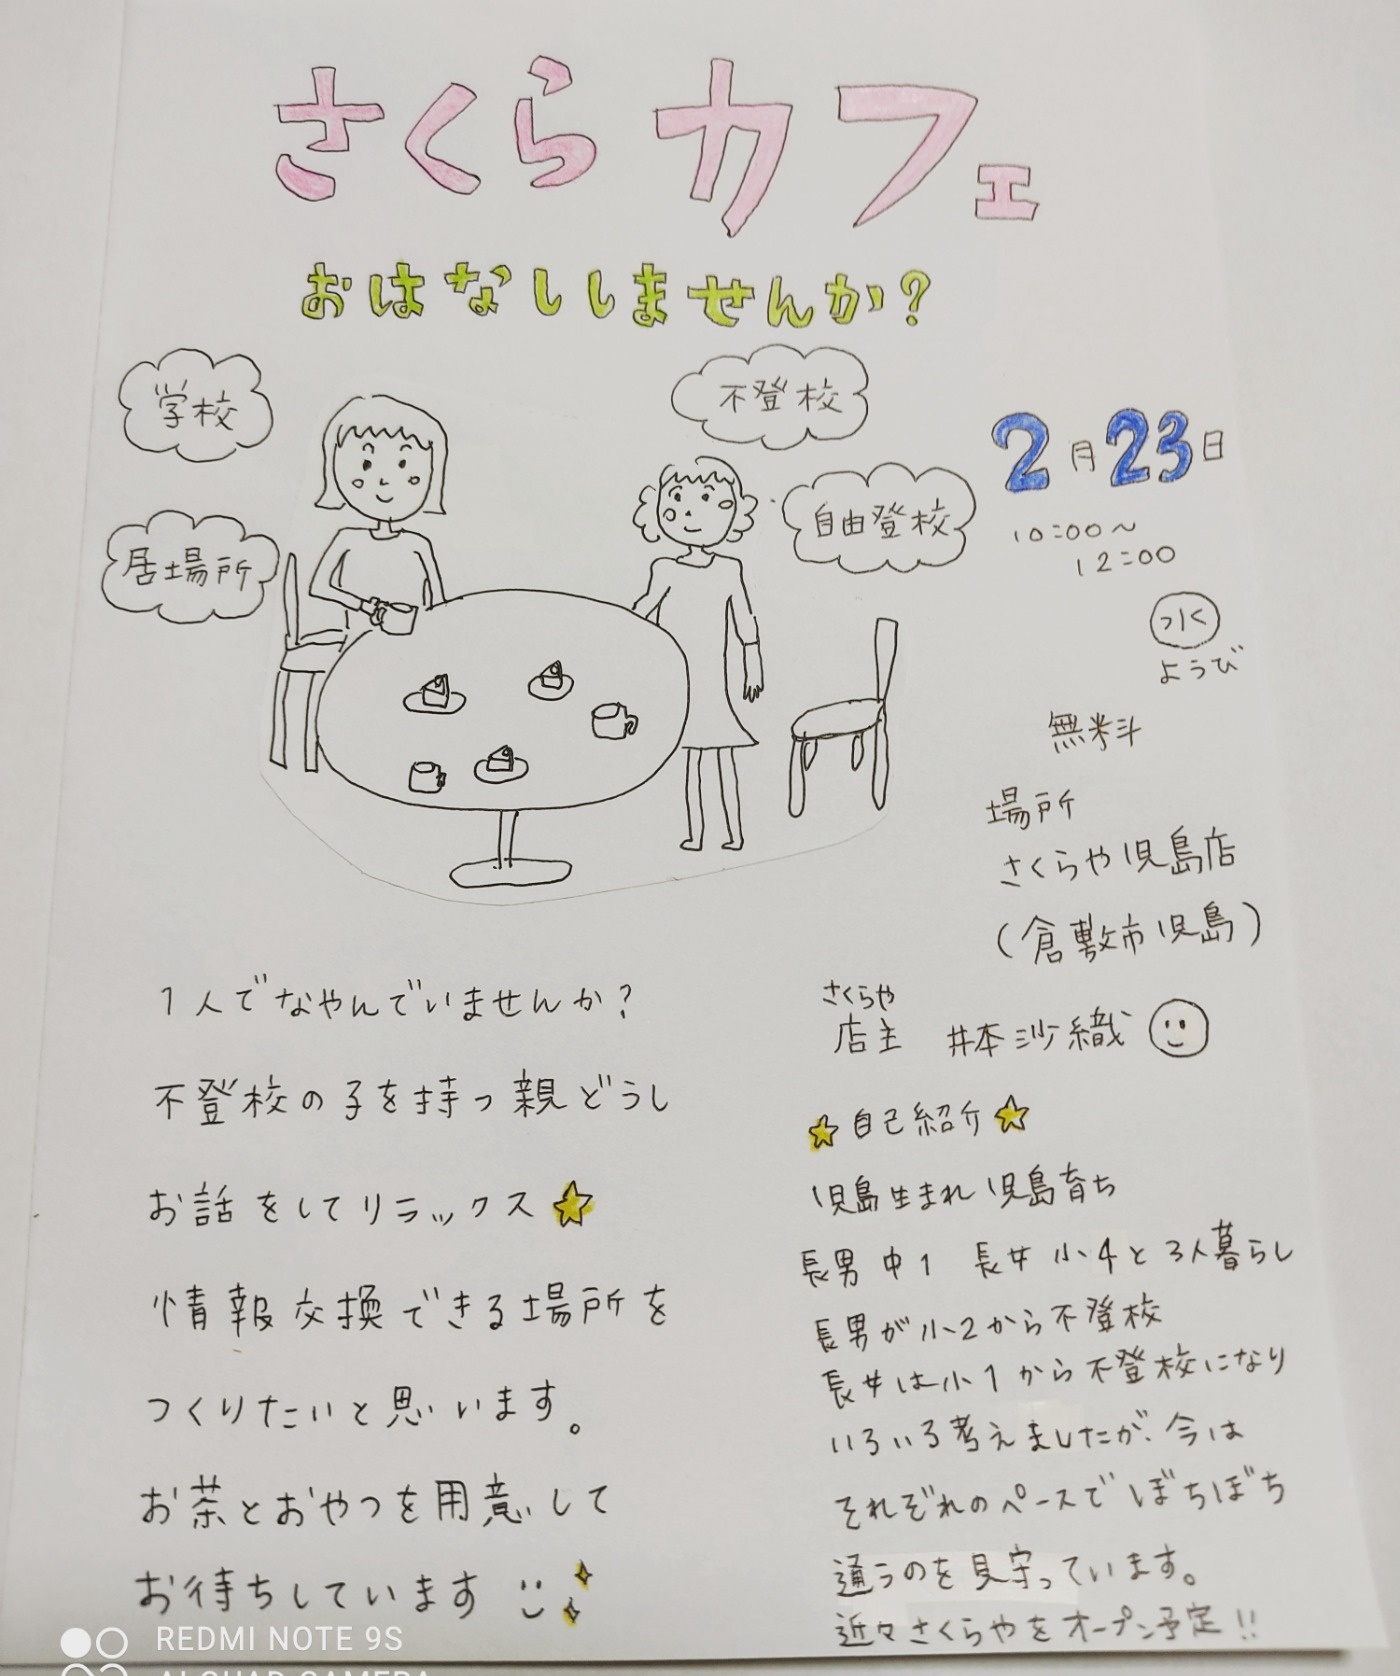 さくらカフェ
おはなししませんか?
学校
不登校
居場所
自由登校
2月23日
10:00~
12:00
水
ようび
無料
場所
さくらや児島店
(倉敷市児島)
1人でなやんでいませんか?
不登校の子を持つ親どうし
お話をしてリラックス
情報交換できる場所を
つくりたいと思います。
お茶とおやつを用意して
お待ちしています
さくらや
店主 井本沙織
自己紹介
児島生まれ児島育ち
長男 中1 長女 小4と3人暮らし
長男が小2から不登校
長女は小1から不登校になり
いろいろ考えましたが、今は
それぞれのペースでぼちぼち
通うのを見守っています。
近々さくらやをオープン予定!!
REDMI NOTE 9S
AI QUAD CAMERA